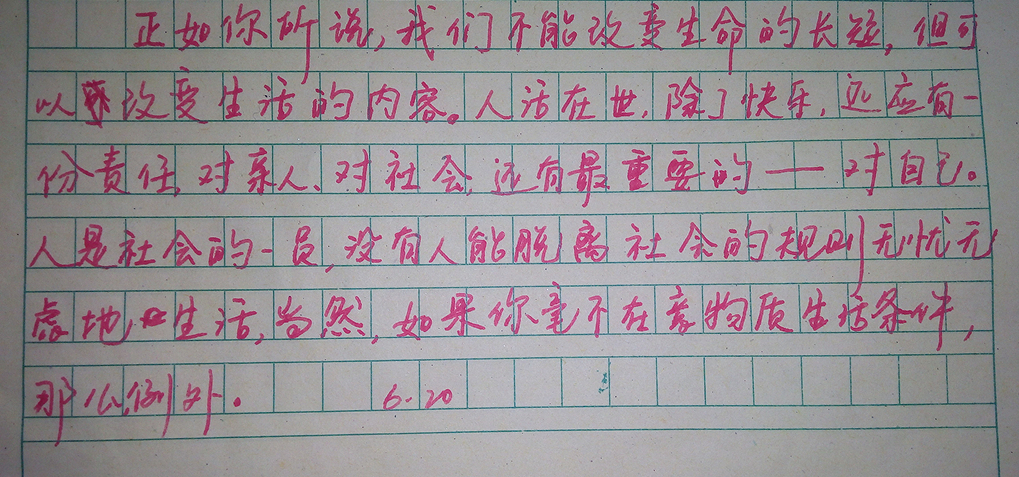 正如你所说,我们不能改变生命的长短,但可
以改变生活的内容。人活在世,除了快乐,还应有一
份责任,对亲人、对社会,还有最重要的——对自己。
人是社会的一员,没有人能脱离社会的规则无忧无
虑地生活,当然,如果你毫不在意物质生活条件,
那么例外。 6.20